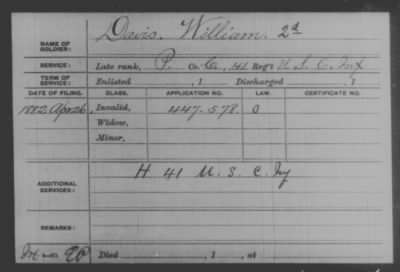 Davis, William. 2d
NAME OF SOLDIER:
SERVICE: Late rank, P. Co. G, 41 Reg't U. S. C. Inf
TERM OF SERVICE: Enlisted , 1 Discharged , 1
DATE OF FILING. CLASS. APPLICATION NO. LAW. CERTIFICATE NO.
1882 Apr 26 Invalid, 447.578 O
Widow,
Minor,
ADDITIONAL SERVICES: H 41 U. S. C. Inf
REMARKS:
Died , 1 , at